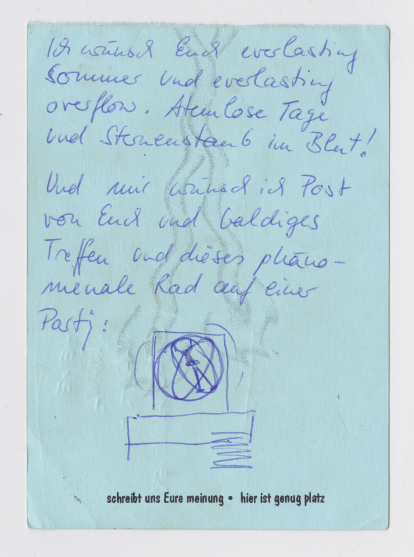 Ich wünsch Euch everlasting
Sommer und everlasting
overflow. Atemlose Tage
und Sternenstaub im Blut!
Und mir wünsch ich Post
von Euch und baldiges
Treffen und dieses phäno-
menale Rad auf einer
Party:
schreibt uns Eure meinung • hier ist genug platz